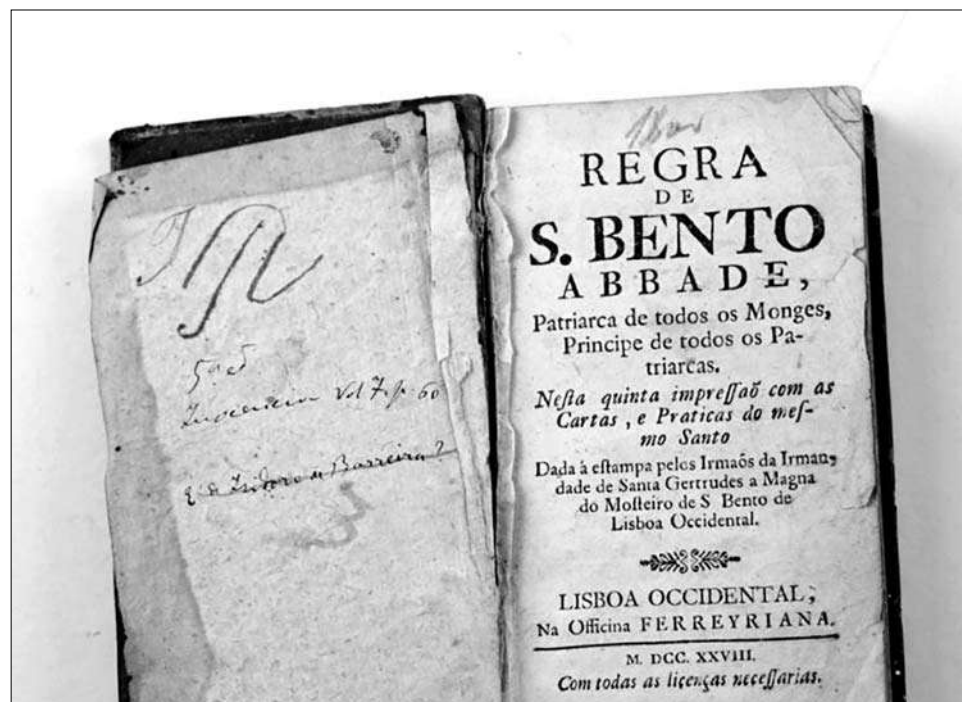 5ª ed
Innocencio Vol 7. p. 60
É de Isidoro de Barreira?
1800
REGRA
DE
S. BENTO
ABBADE,
Patriarca de todos os Monges,
Principe de todos os Pa-
triarcas.
Neſta quinta impreſſaõ com as
Cartas, e Praticas do meſ-
mo Santo
Dada à eſtampa pelos Irmaõs da Irman-
dade de Santa Gertrudes a Magna
do Moſteiro de S Bento de
Lisboa Occidental.
LISBOA OCCIDENTAL;
Na Officina FERREYRIANA.
M. DCC. XXVIII.
Com todas as licenças neceſſarias.